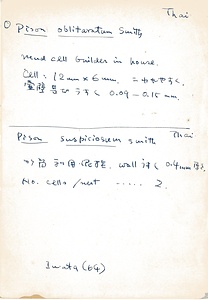 Thai
○ Pison obliteratum Smith
mud cell builder in house.
Cell : 12mm × 6mm. こわれやすく
壁厚ひうすく 0.09 – 0.15 mm.
Pison suspiciosum Smith Thai
wall うすく 0.4mm
No. cells / nest ‥‥‥ 2.
Iwata (64)